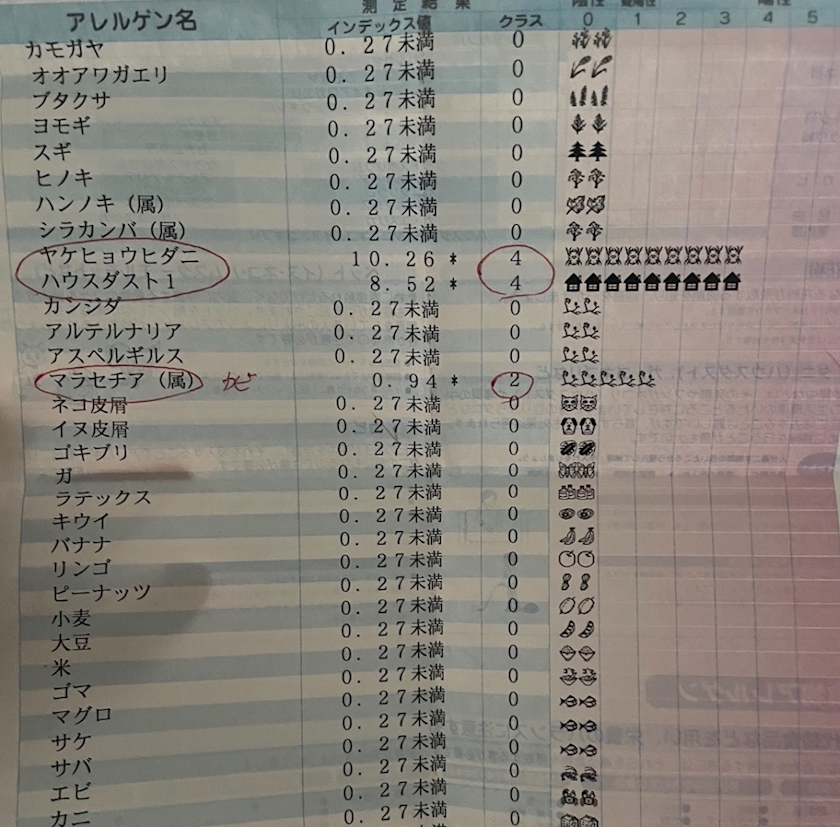 測 定 結 果
アレルゲン名 インデックス値 クラス 0 1 2 3 4 5
カモガヤ 0.27未満 0
オオアワガエリ 0.27未満 0
ブタクサ 0.27未満 0
ヨモギ 0.27未満 0
スギ 0.27未満 0
ヒノキ 0.27未満 0
ハンノキ（属） 0.27未満 0
シラカンバ（属） 0.27未満 0
ヤケヒョウヒダニ 10.26 * 4
ハウスダスト1 8.52 * 4
カンジダ 0.27未満 0
アルテルナリア 0.27未満 0
アスペルギルス 0.27未満 0
マラセチア（属） カビ 0.94 * 2
ネコ皮屑 0.27未満 0
イヌ皮屑 0.27未満 0
ゴキブリ 0.27未満 0
ガ 0.27未満 0
ラテックス 0.27未満 0
キウイ 0.27未満 0
バナナ 0.27未満 0
リンゴ 0.27未満 0
ピーナッツ 0.27未満 0
小麦 0.27未満 0
大豆 0.27未満 0
米 0.27未満 0
ゴマ 0.27未満 0
マグロ 0.27未満 0
サケ 0.27未満 0
サバ 0.27未満 0
エビ 0.27未満 0
カニ 0.27未満 0